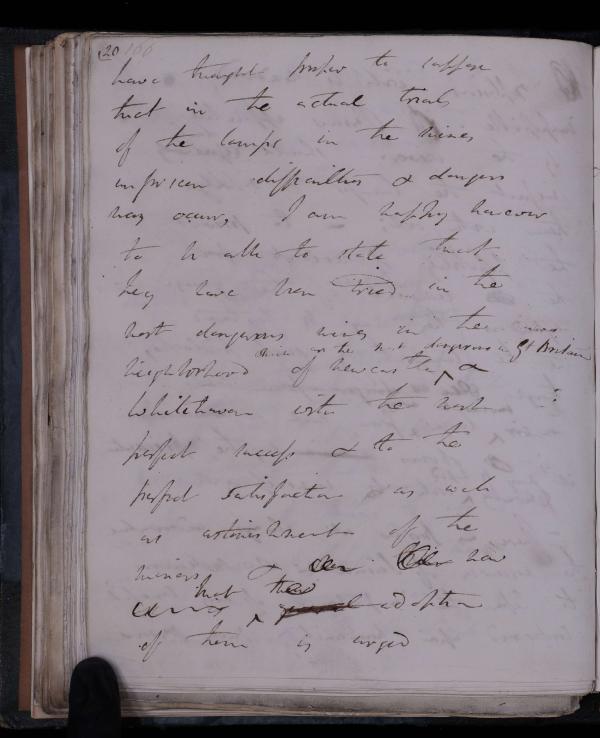 20 166
have thought proper to suppose
that in the actual trials
of the lamps in the mines
unforseen difficulties & dangers
may occur, I am happy however
to be able to state that
they have been tried in the
most dangerous mines in the
which are the most dangerous in Gt Britain
neighborhood of Newcastle &
Whitehaven with the most
perfect success & to the
perfect satisfaction as well
as astonishment of the
miners &
that the
adoption
of them is urged